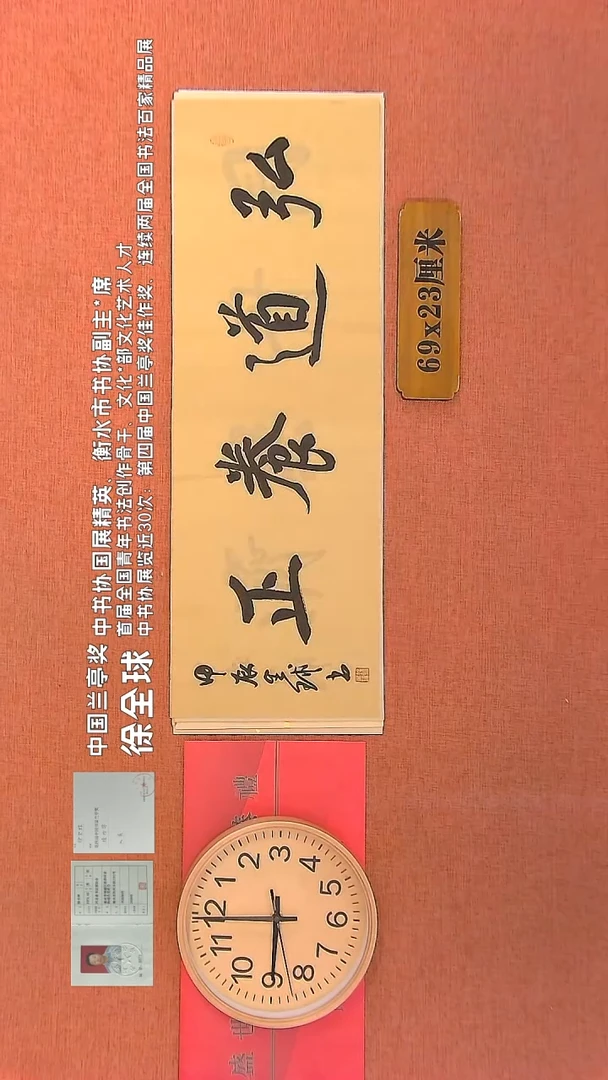 中国兰亭奖 中书协国展精英、衡水市书协副主*席
徐全球
首届全国青年书法创作骨干、文化*部文化艺术人才
中书协展览近30次：第四届中国兰亭奖佳作奖、连续两届全国书法百家精品展
弘道養正
甲辰全球书
69x23厘米
盛世
禮
12
1
2
3
4
5
6
7
8
9
10
11